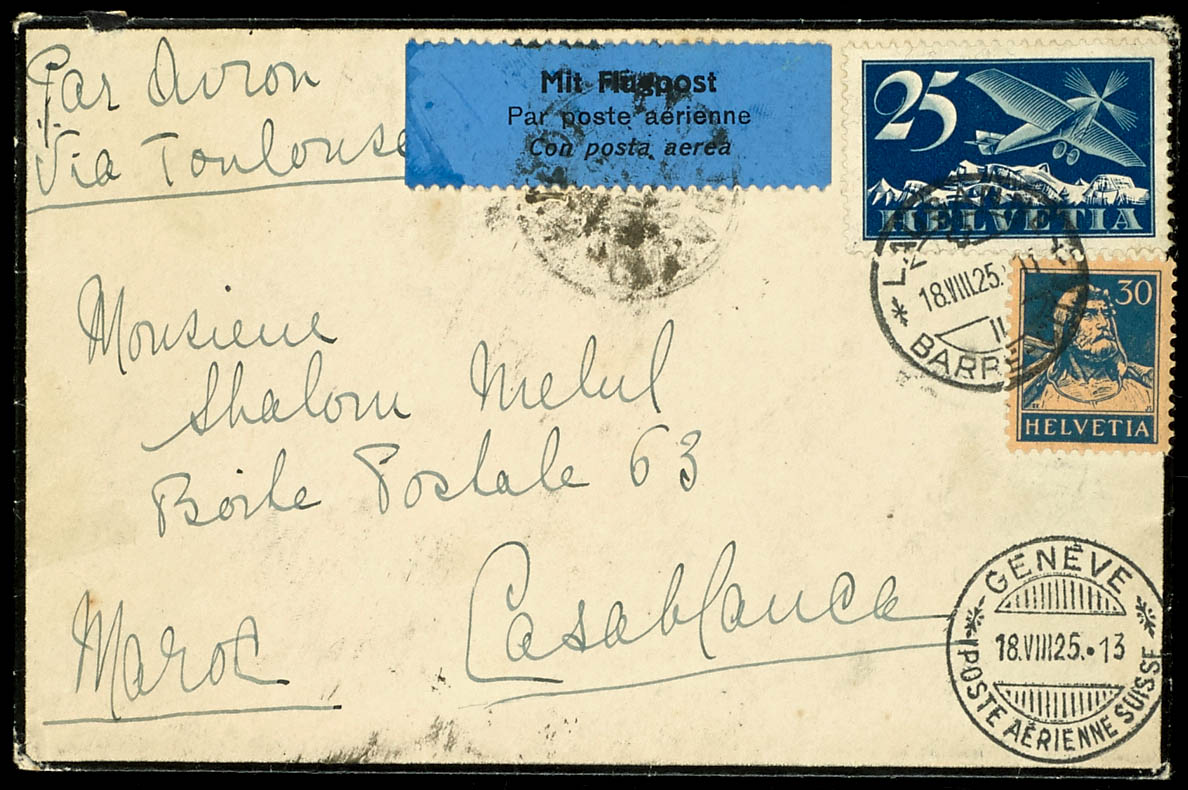 Par Avion
Via Toulouse
Mit Flugpost
Par poste aérienne
Con posta aerea
25
HELVETIA
30
HELVETIA
18.VIII.25.
Monsieur
Shalom Melul
Boite Postale 63
Casablanca
Maroc
GENÈVE
18.VIII25.•13
POSTE AÉRIENNE SUISSE